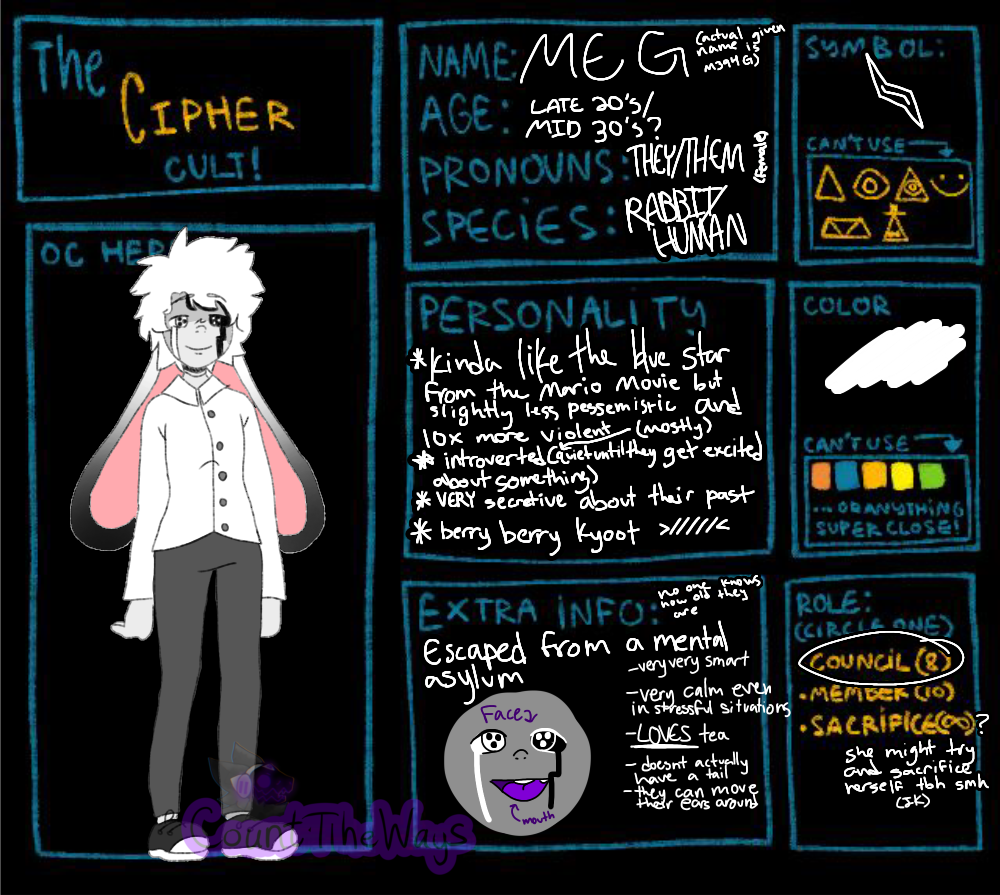 The
CIPHER
CULT!
OC HER
NAME: MEG (actual given
name is
M394G)
AGE: LATE 20's/
MID 30's?
PRONOUNS: THEY/THEM (female)
SPECIES: RABBIT/
HUMAN
SYMBOL:
CAN'T USE
PERSONALITY
*kinda like the blue star
from the Mario Movie but
slightly less pessemistic and
10x more violent (mostly)
* introverted (quiet until they get excited
about something)
* VERY secretive about their past
* berry berry kyoot >//////<
COLOR
CAN'T USE
... OR ANYTHING
SUPER CLOSE!
EXTRA INFO: no one knows
how old they
are
Escaped from a mental
asylum
-very very smart
-very calm even
in stressful situations
-LOVES tea
- doesnt actually
have a tail
-they can move
their ears around
Face2
mouth
ROLE:
(CIRCLE ONE)
COUNCIL (8)
•MEMBER (10)
•SACRIFICE (∞)?
she might try
and sacrifice
herself tbh smh
(JK)
CountTheWays